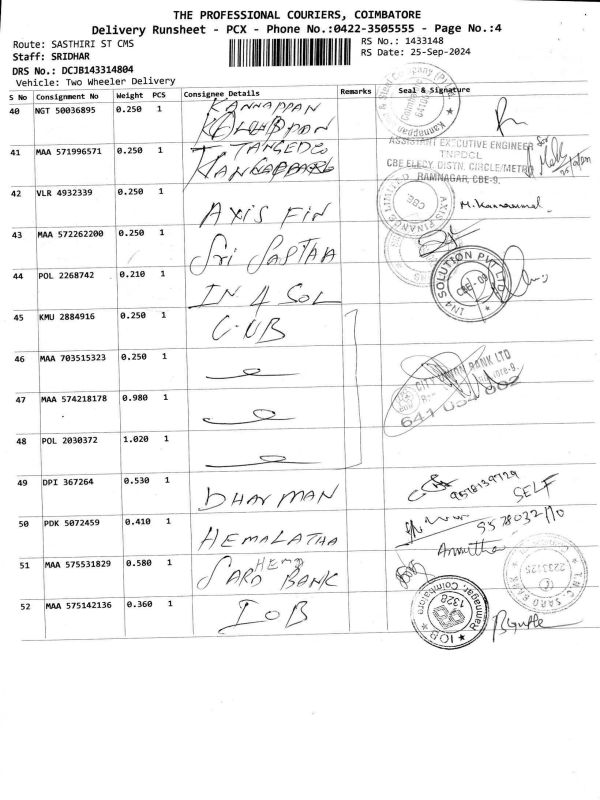 THE PROFESSIONAL COURIERS, COIMBATORE
Delivery Runsheet - PCX - Phone No.:0422-3505555 - Page No.:4
Route: SASTHIRI ST CMS
RS No.: 1433148
Staff: SRIDHAR
RS Date: 25-Sep-2024
DRS No.: DCJB143314804
Vehicle: Two Wheeler Delivery
S No Consignment No Weight PCS Consignee Details Remarks Seal & Signature
40 NGT 50036895 0.250 1 KANNAPPAN
41 MAA 571996571 0.250 1 TANGEDCO
ASSISTANT EXECUTIVE ENGINEER
TNPDCL
CBE ELECY. DISTN. CIRCLE/METRO
RAMNAGAR, CBE-9.
42 VLR 4932339 0.250 1 AXIS FIN
AXIS FINANCE LIMITED
CBE
43 MAA 572262200 0.250 1 Sri SASTHA
44 POL 2268742 0.210 1 IN 4 SOL
IN4 SOLUTION PVT LTD
CBE - 09
45 KMU 2884916 0.250 1 CUB
46 MAA 703515323 0.250 1
CITY UNION BANK LTD
47 MAA 574218178 0.980 1
48 POL 2030372 1.020 1
49 DPI 367264 0.530 1 DHARMAN
9578139729
SELF
50 PDK 5072459 0.410 1 HEMALATHA
51 MAA 575531829 0.580 1 HEMA
SARO BANK
2233125
52 MAA 575142136 0.360 1 IOB
Ramnagar, Coimbatore
1328
IOB